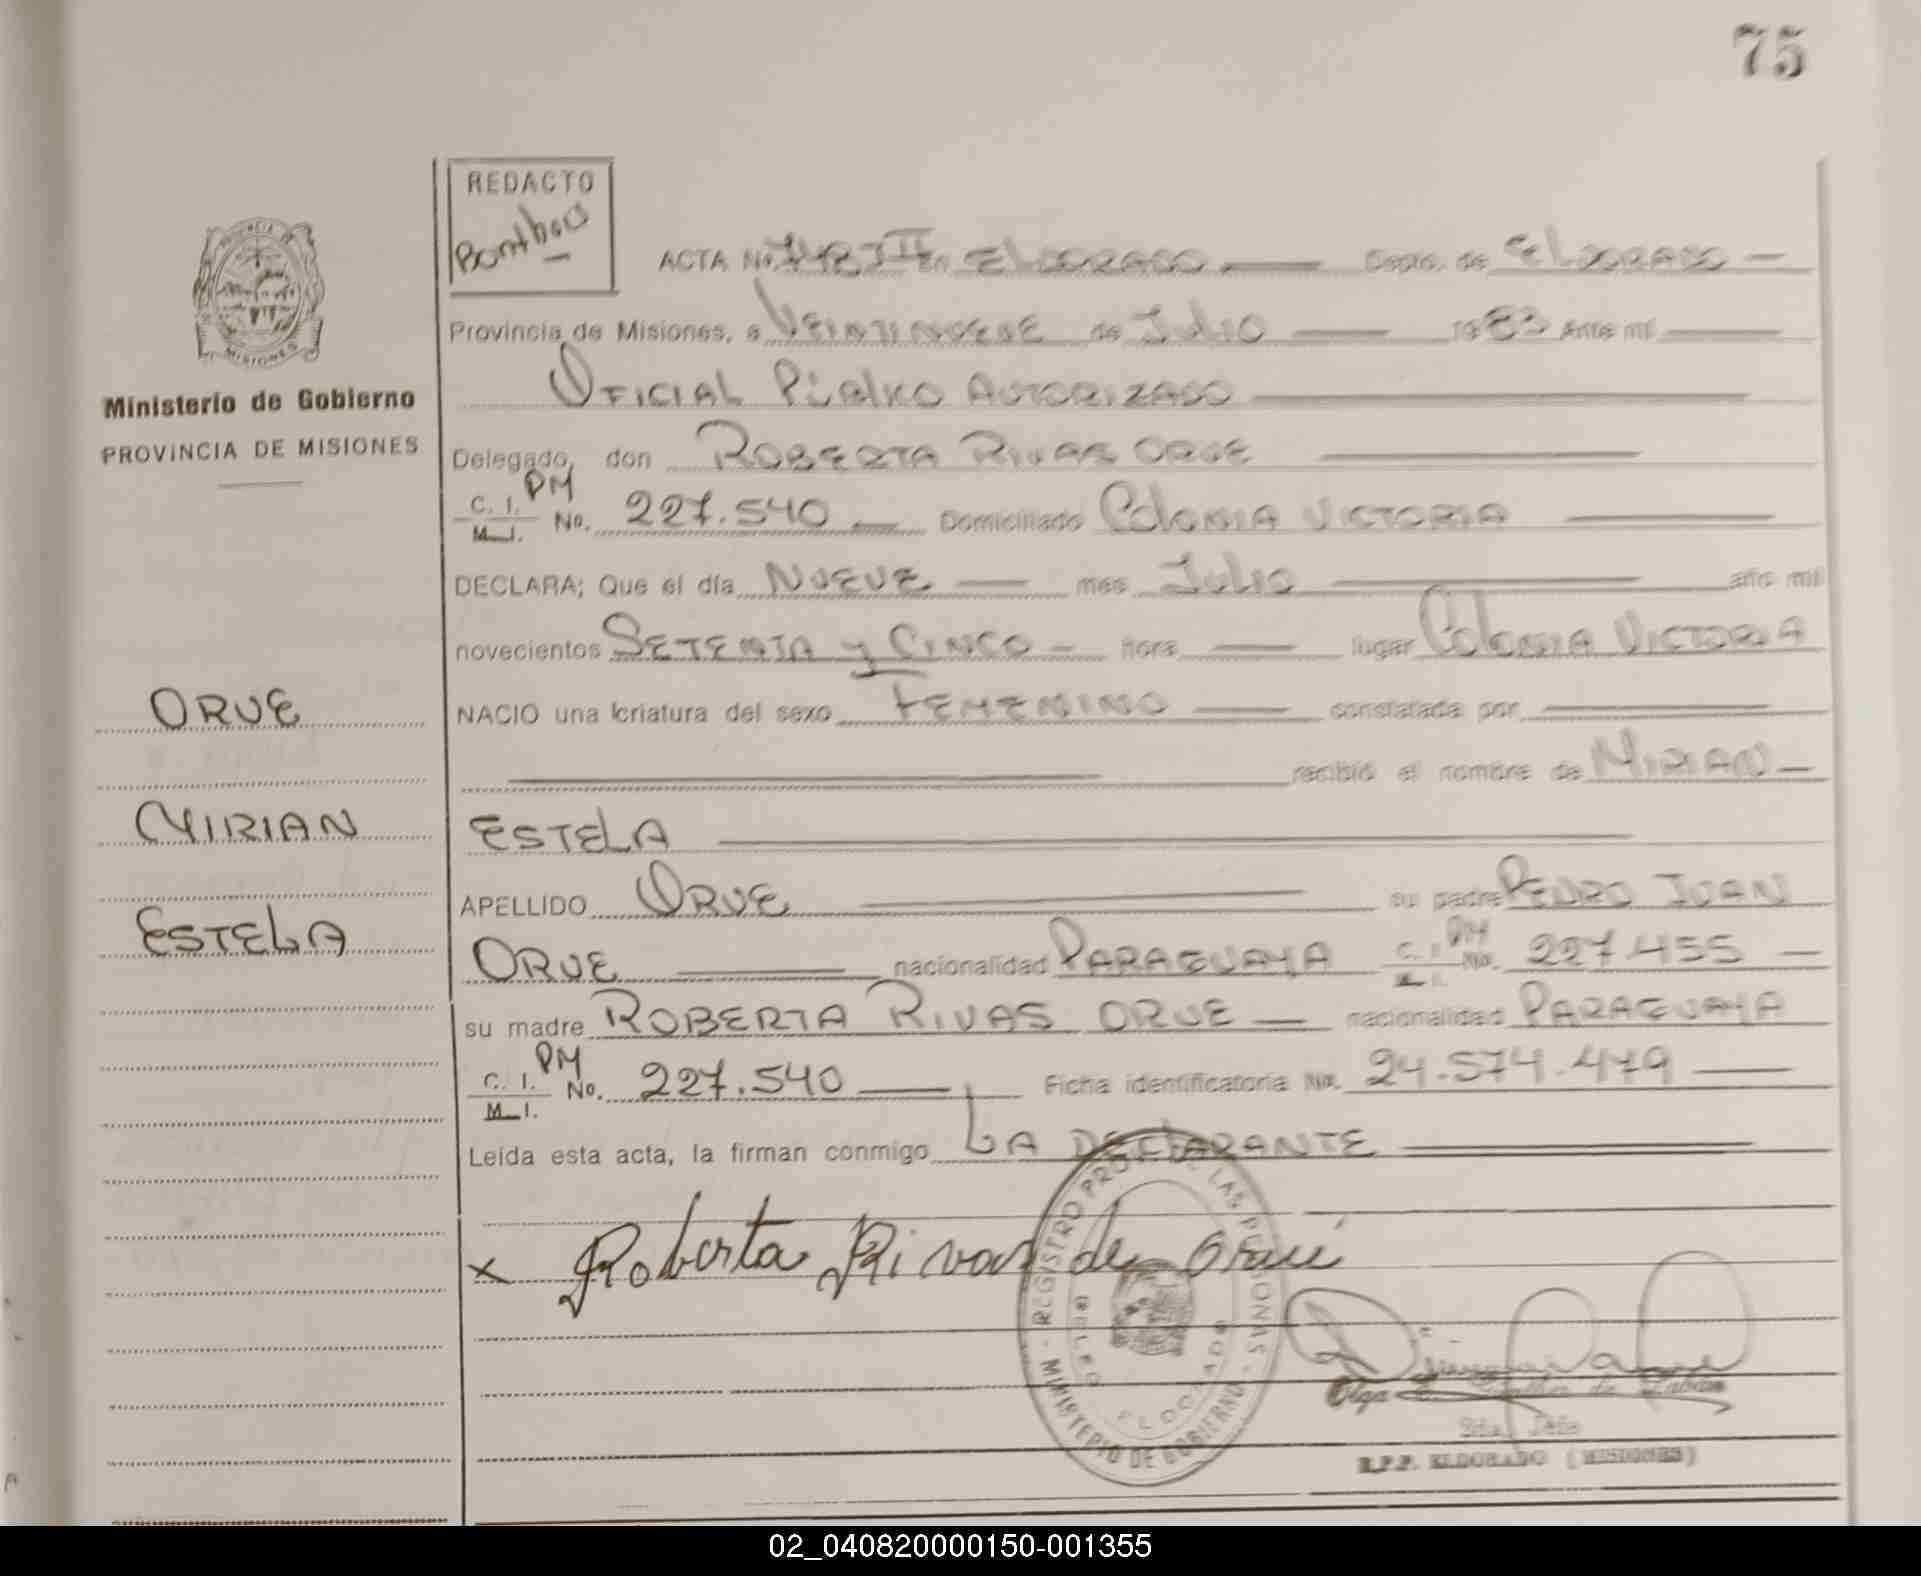 75
REDACTO
ACTA No. 748 II En ELDORADO Depto. de ELDORADO
Provincia de Misiones, a VEINTINUEVE de JULIO 1983 Ante mí
OFICIAL PÚBLICO AUTORIZADO
Ministerio de Gobierno
PROVINCIA DE MISIONES
Delegado, don ROBERTA RIVAS ORUE
C. I. DM
M. I. No. 227.540 Domiciliado COLONIA VICTORIA
DECLARA; Que el día NUEVE mes JULIO año mil
novecientos SETENTA y CINCO hora lugar COLONIA VICTORIA
ORUE
NACIO una criatura del sexo FEMENINO constatada por
recibió el nombre de MIRIAN
MIRIAN
ESTELA
APELLIDO ORUE su padre PEDRO JUAN
ESTELA
ORUE nacionalidad PARAGUAYA C. I. DM M. I. No. 227.455
su madre ROBERTA RIVAS ORUE nacionalidad PARAGUAYA
C. I. DM
M. I. No. 227.540 Ficha identificatoria No. 24.574.479
Leída esta acta, la firman conmigo LA DECLARANTE
x Roberta Rivas de Orué
REGISTRO PROV. DE LAS PERSONAS
MINISTERIO DE GOBIERNO
ELDORADO
Olga de
R.P.P. ELDORADO (MISIONES)
02_040820000150-001355